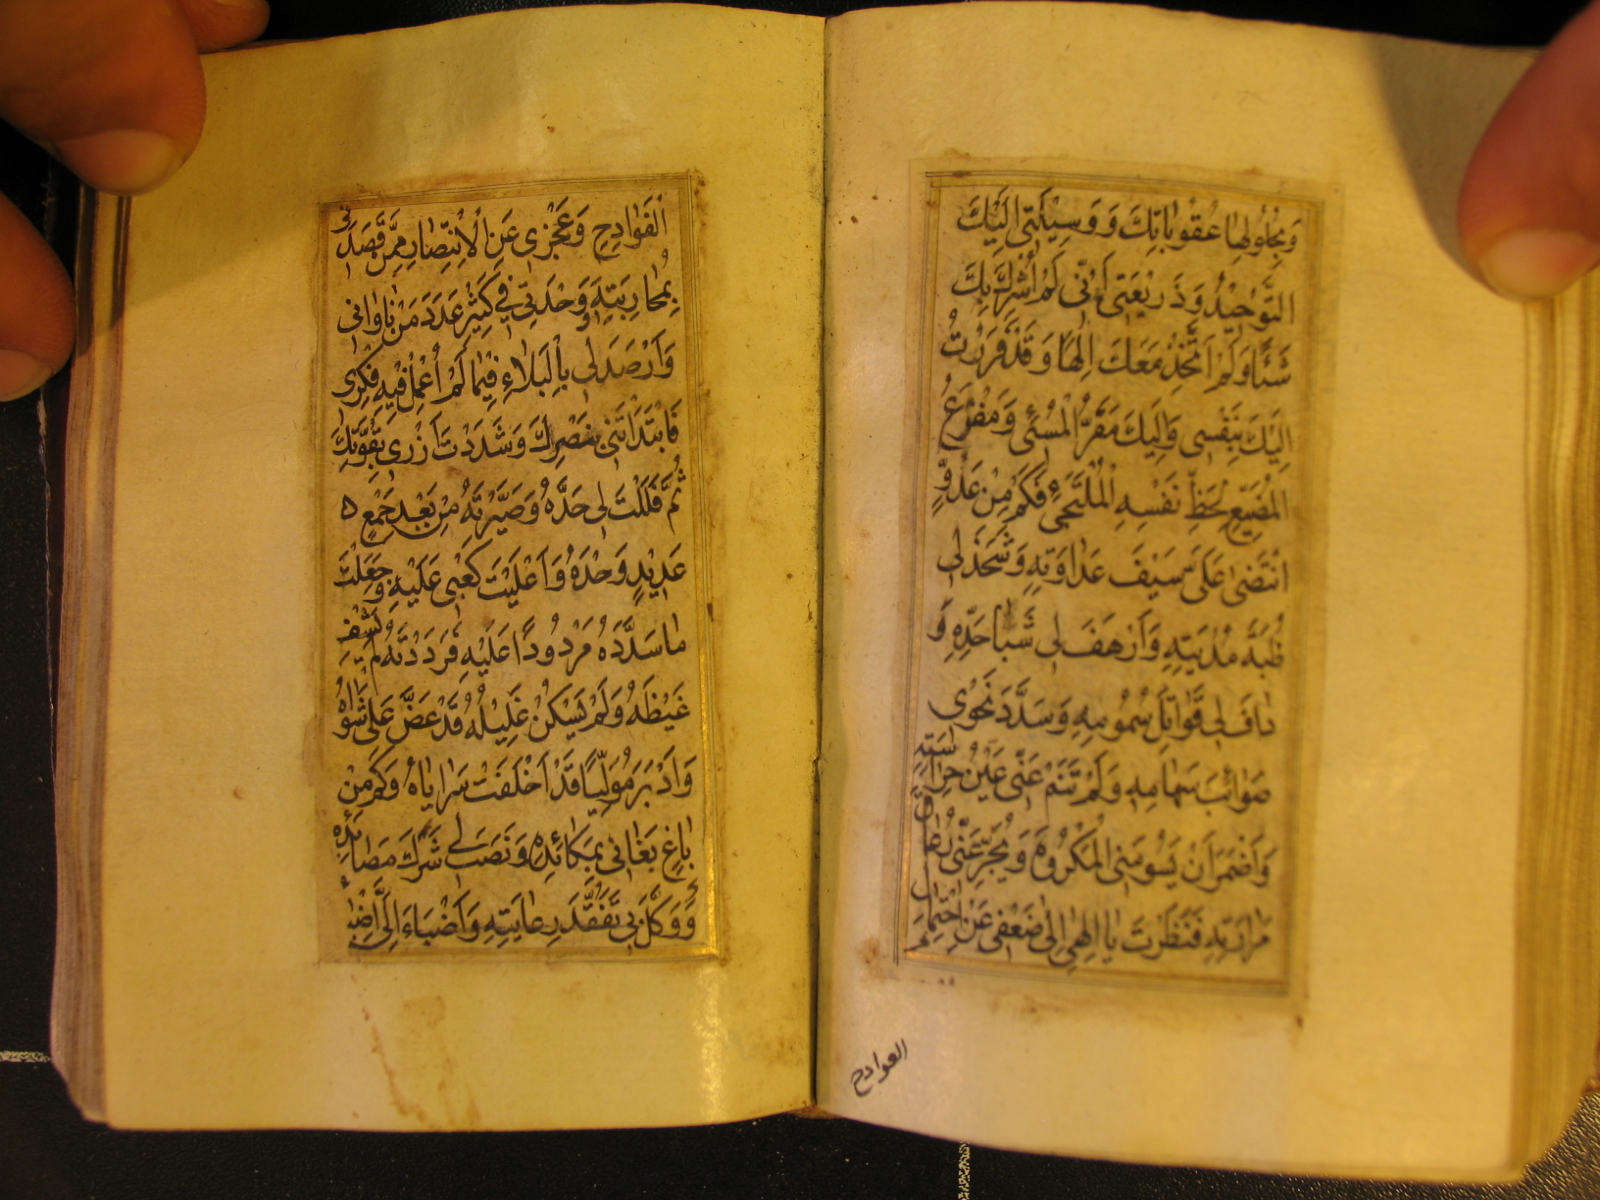 وَبِحُلُولِهَا عُقُوبَاتِكَ وَ وَسِيلَتِي إِلَيْكَ
التَّوْحِيدُ وَ ذَرِيعَتِي أَنِّي لَمْ أُشْرِكْ بِكَ
شَيْئًا وَلَمْ أَتَّخِذْ مَعَكَ إِلٰهًا وَقَدْ فَرَرْتُ
إِلَيْكَ بِنَفْسِي وَإِلَيْكَ مَفَرُّ الْمُسِئِ وَمَفْزَعُ
الْمُضَيِّعِ لِحَظِّ نَفْسِهِ الْمُلْتَجِئِ فَكَمْ مِنْ عَدُوٍّ
انْتَضٰى عَلَيَّ سَيْفَ عَدَاوَتِهِ وَشَحَذَ لِي
ظُبَةَ مُدْيَتِهِ وَأَرْهَفَ لِي شَبَا حَدِّهِ وَ
دَافَ لِي قَوَاتِلَ سُمُومِهِ وَسَدَّدَ نَحْوِي
صَوَائِبَ سِهَامِهِ وَلَمْ تَنَمْ عَنِّي عَيْنُ حِرَاسَتِهِ
وَأَضْمَرَ أَنْ يَسُومَنِي الْمَكْرُوهَ وَيُجَرِّعَنِي زُعَاقَ
مَرَارَتِهِ فَنَظَرْتَ يَا إِلٰهِي إِلٰى ضَعْفِي عَنِ احْتِمَالِ
الفوادح
الْفَوَادِحِ وَعَجْزِي عَنِ الْاِنْتِصَارِ مِمَّنْ قَصَدَنِي
بِمُحَارَبَتِهِ وَوَحْدَتِي فِي كَثِيرِ عَدَدِ مَنْ نَاوَانِي
وَأَرْصَدَ لِي بِالْبَلَاءِ فِيمَا لَمْ أُعْمِلْ فِيهِ فِكْرِي
فَابْتَدَأْتَنِي بِنَصْرِكَ وَشَدَدْتَ أَزْرِي بِقُوَّتِكَ
ثُمَّ فَلَلْتَ لِي حَدَّهُ وَصَيَّرْتَهُ مِنْ بَعْدِ جَمْعٍ
عَدِيدٍ وَحْدَهُ وَأَعْلَيْتَ كَعْبِي عَلَيْهِ وَجَعَلْتَ
مَا سَدَّدَهُ مَرْدُودًا عَلَيْهِ فَرَدَدْتَهُ لَمْ يَشْفِ
غَيْظَهُ وَلَمْ يَسْكُنْ غَلِيلُهُ قَدْ عَضَّ عَلٰى شَوَاهُ
وَأَدْبَرَ مُوَلِّيًا قَدْ أَخْلَفَتْ سَرَايَاهُ وَكَمْ مِنْ
بَاغٍ بَغَانِي بِمَكَائِدِهِ وَنَصَبَ لِي شَرَكَ مَصَائِدِهِ
وَوَكَّلَ بِي تَفَقُّدَ رِعَايَتِهِ وَأَضْبَاءَ إِلَيَّ